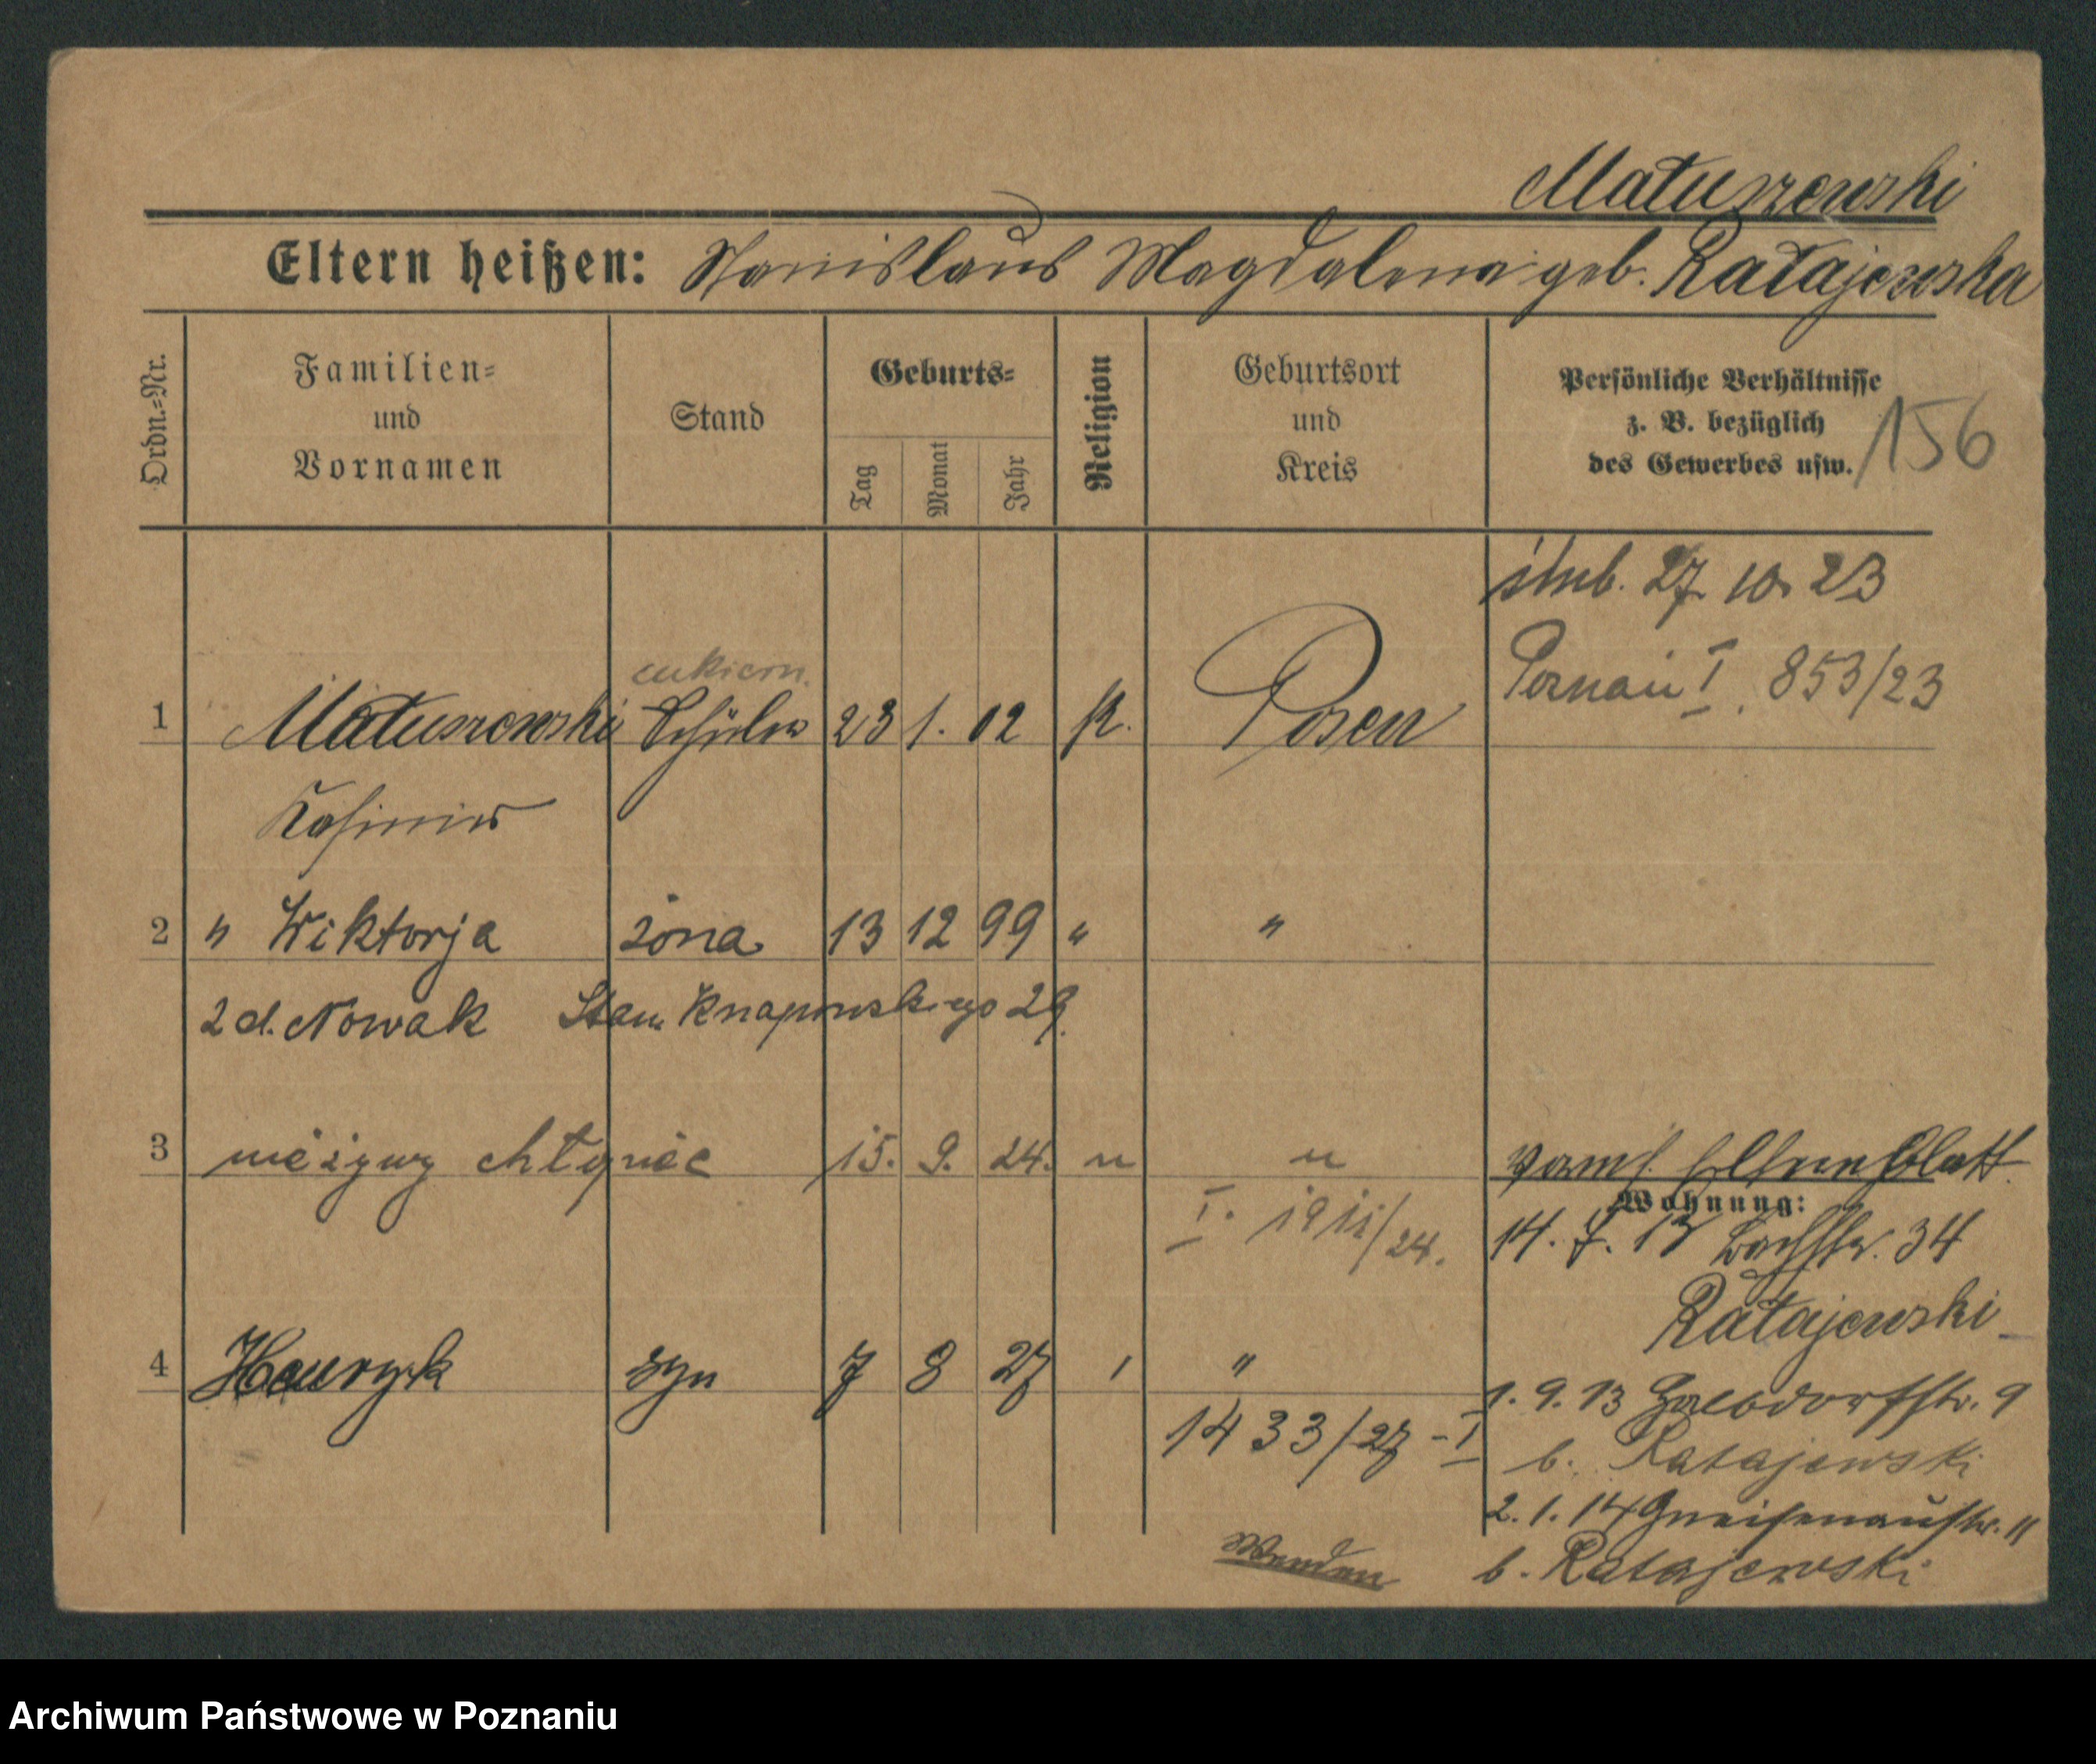 Matuszewski
Eltern heißen: Stanislaus Magdalena geb. Ratajczewska
Ordn.=Nr.
Familien=
und
Vornamen
Stand
Geburts=
Tag
Monat
Jahr
Religion
Geburtsort
und
Kreis
Persönliche Verhältnisse
z. B. bezüglich
des Gewerbes usw.
156
ślub. 27. 10. 23
Poznań I. 853/23
cukiern.
1 Matuszewski Schüler 23 1. 02 k. Posen
Kasimir
2 " Wiktorja żona 13 12 99 " "
2 d. Nowak Knapowskiego 29.
3 nieżywy chłopiec 15. 9. 24. " "
Elternblatt
Wohnung:
I. 1911/24.
14. 7. 13 34
Ratajewski
4 Henryk syn 7 8 27 "
1. 9. 13 9
1433/27 - I
b. Ratajewski
2. 1. 14 Gneisenaustr. 11
Wenden
b. Ratajewski
Archiwum Państwowe w Poznaniu